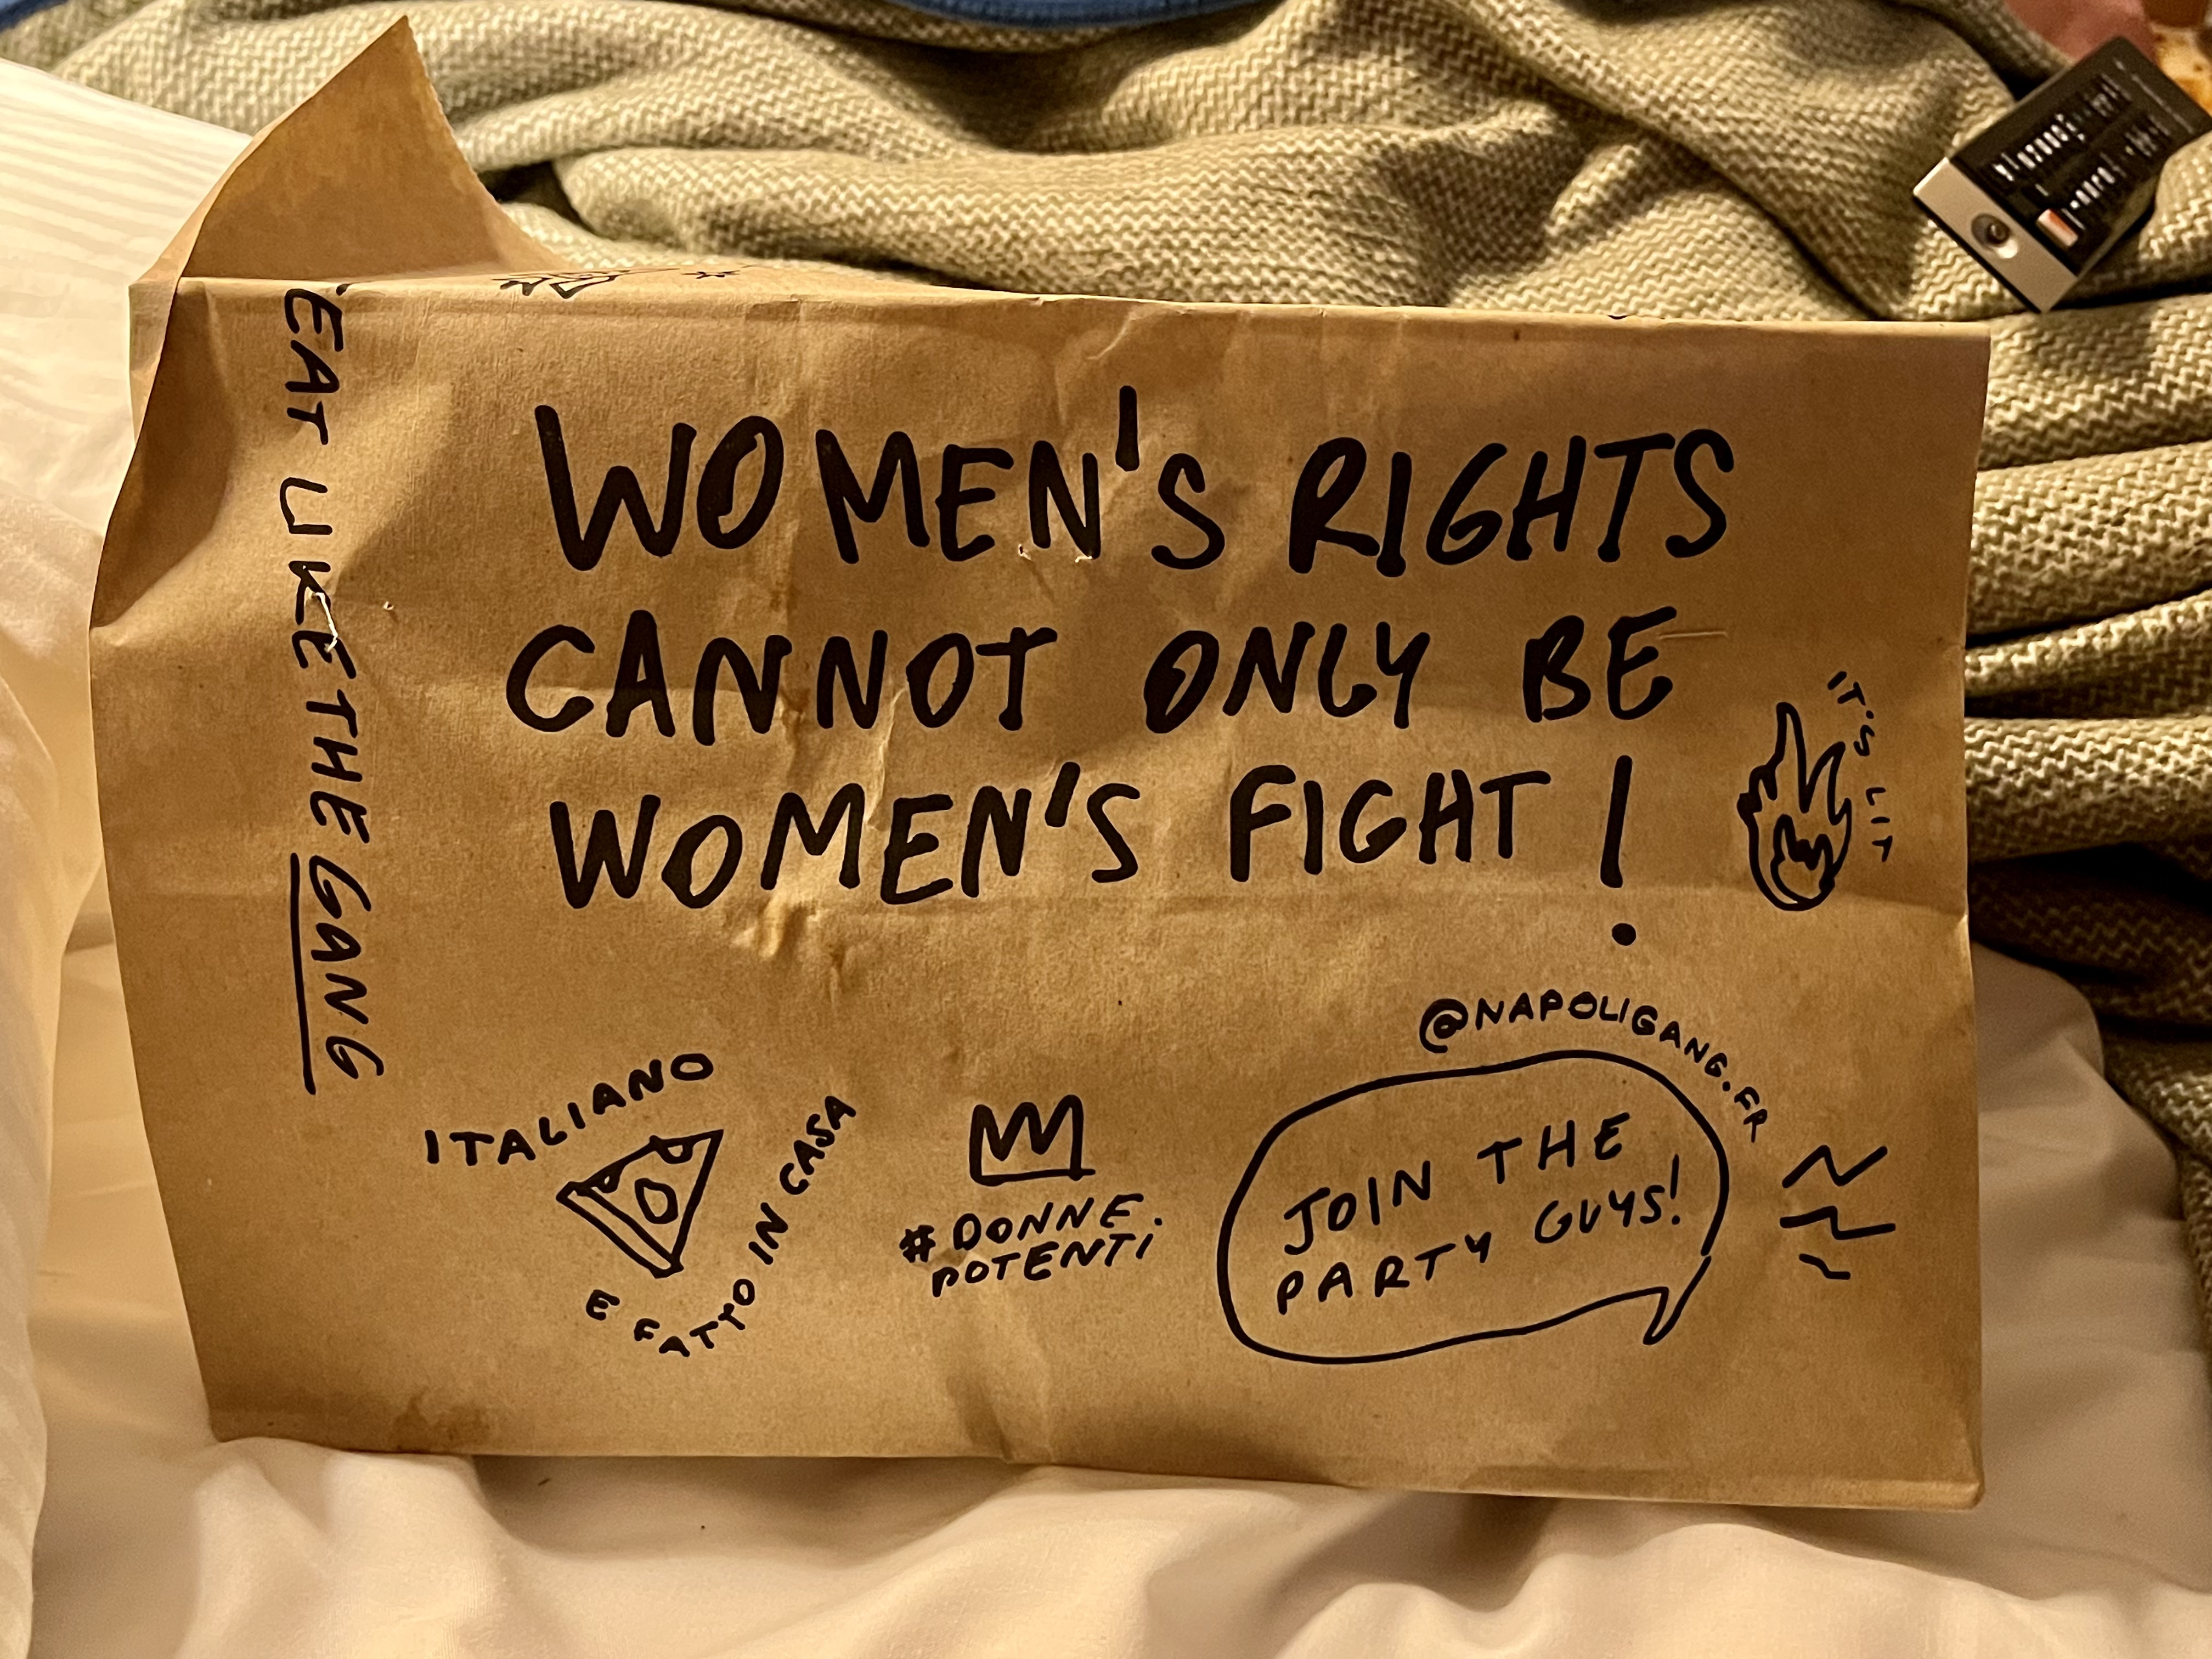 EAT LIKE THE GANG
WOMEN'S RIGHTS
CANNOT ONLY BE
WOMEN'S FIGHT!
IT'S LIT
@NAPOLIGANG.FR
ITALIANO
E FATTO IN CASA
#DONNE.
POTENTI
JOIN THE
PARTY GUYS!